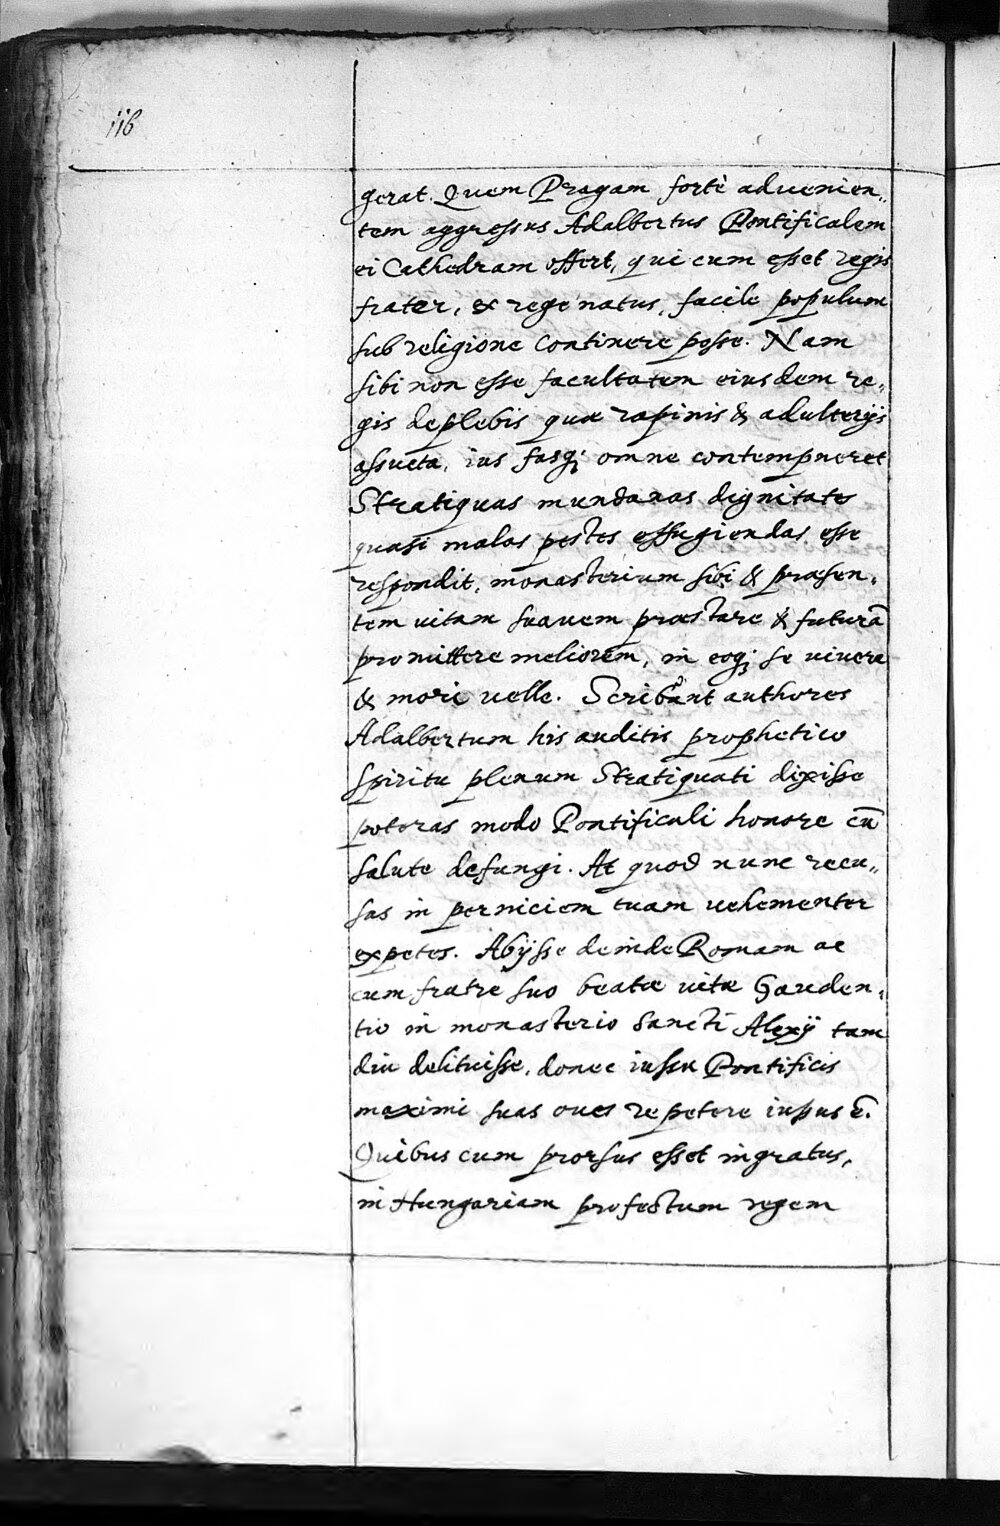 116
gerat. Quem Pragam fortè aduenien„
tem aggressus Adalbertus Pontificalem
ei Cathedram offert, qui cum esset regis
frater, & rege natus, facile populum
sub religione continere posse. Nam
sibi non esse facultatem eiusdem re„
gis deplebis quæ rapinis & adulterijs
assueta, ius fasq; omne contempneret
Stratiquas mundanas dignitates
quasi malas pestes effugiendas esse
respondit, monasterium sibi & præsen„
tem uitam suauem præstare & futurā
promittere meliorem, in eoq; se uiuere
& mori uelle. Scribunt authores
Adalbertum his auditis prophetico
spiritu plenum Stratiquati dixisse
poteras modo Pontificali honore cū
salute defungi. At quod nunc recu„
sas in perniciem tuam uehementer
expetes. Abijsse deinde Romam ac
cum fratre suo beatæ uitæ Gauden„
tio in monasterio Sancti Alexij tam
diu delituisse, donec iussu Pontificis
maximi suas oues repetere iussus ē.
Quibus cum prorsus esset ingratus,
in Hungariam profectum regem